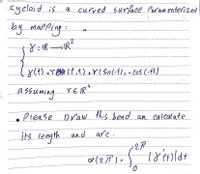 Cycloid is a curved surface Parameterized
by mapping :
γ : ℝ → ℝ²
γ(t) = r (t, 1) + r (sin(-t), -cos(-t))
Assuming r ∈ ℝ⁺
• Please Draw this bend an calculate
its length and arc.
α(2π) = ∫₀^2π |γ'(t)| dt